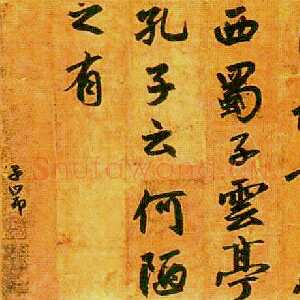 西蜀子雲亭
孔子云何陋
之有
子昂